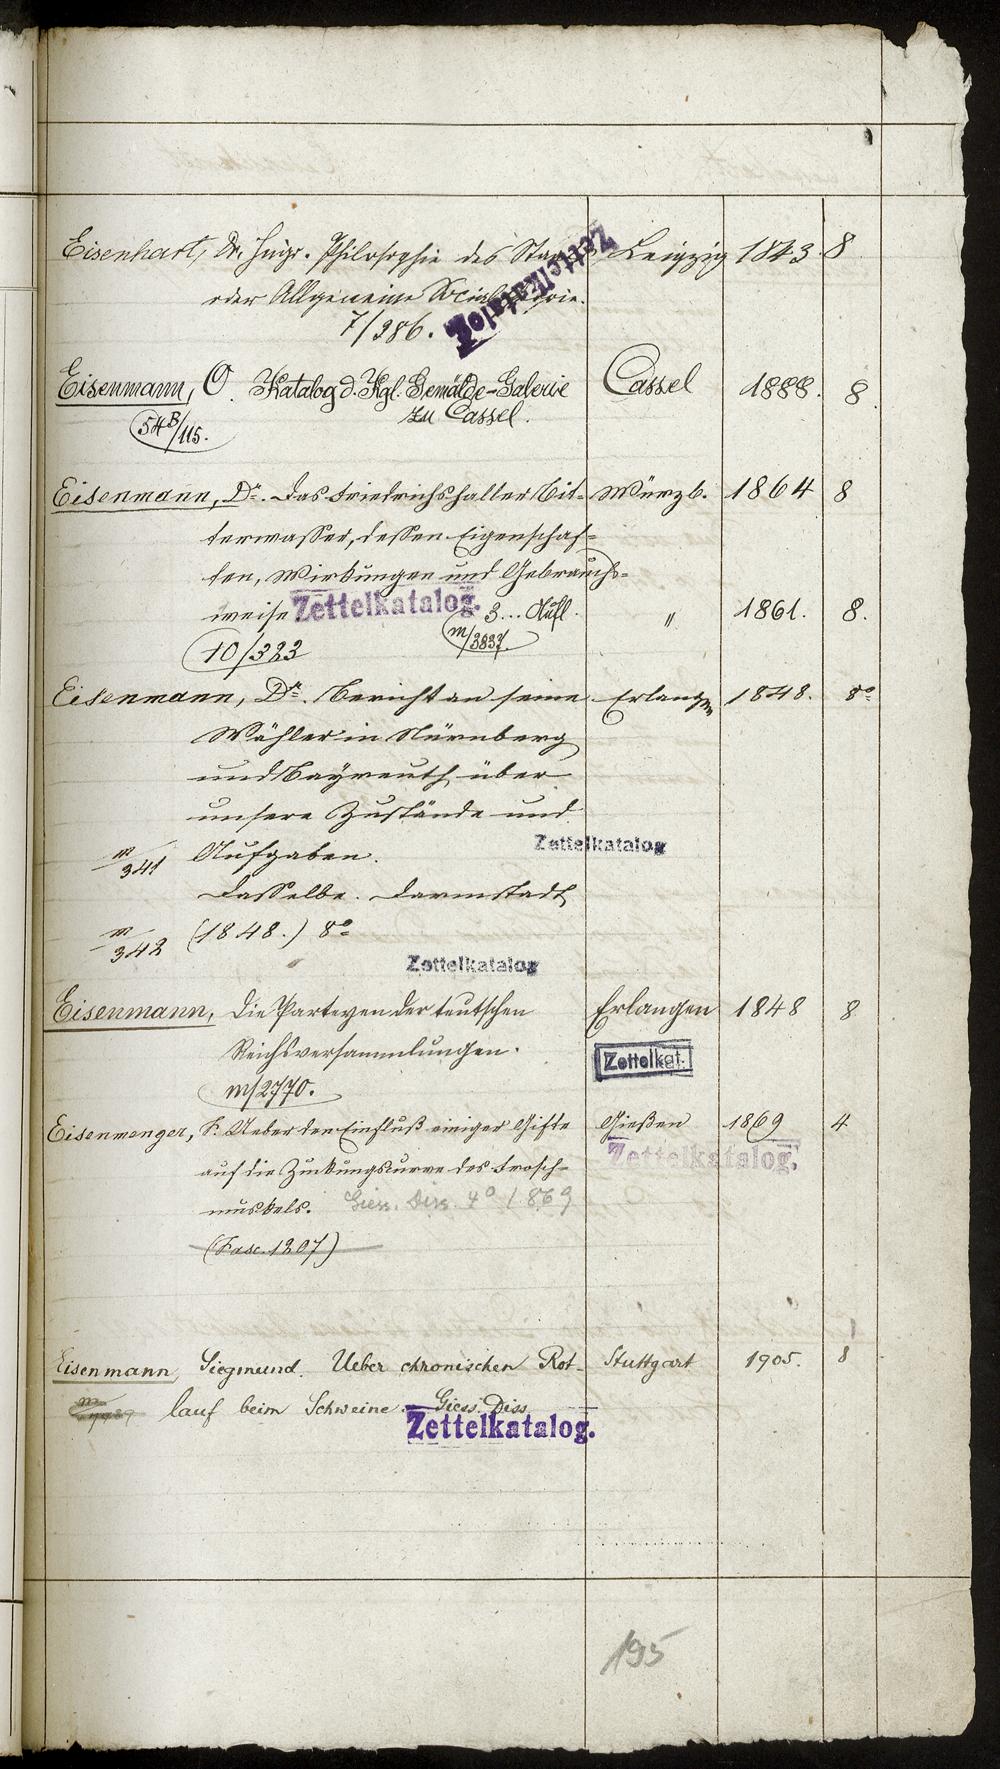 Eisenhart, Dr. Hugo. Philosophie des Staats Leipzig 1843. 8
oder Allgemeine Socialtheorie.
Zettelkatalog.
7/386.
Eisenmann, O. Katalog d. Kgl. Gemälde-Galerie Cassel 1888. 8.
zu Cassel.
54B/115.
Eisenmann, Dr. Das Friedrichshaller Bit- Würzb. 1864 8
terwasser, dessen Eigenschaf-
ten, Wirkungen und Gebrauchs-
weise Zettelkatalog. 3... Aufl. " 1861. 8.
10/323 m/3837.
Eisenmann, Dr. Bericht an seine Erlangen 1848. 8°
Wähler in Nürnberg
und Bayreuth über
unsere Zustände und
Zettelkatalog
m/341 Aufgaben.
Dasselbe. Darmstadt
m/342 (1848.) 8°
Zettelkatalog
Eisenmann, Die Parteyen der teutschen Erlangen 1848 8
Reichsversammlungen.
Zettelkat.
m/2770.
Eisenmenger, F. Ueber den Einfluß einiger Gifte Gießen 1869 4
Zettelkatalog.
auf die Zuckungscurve des Frosch-
muskels. Giess. Diss. 4° 1869
(Fasc. 1207)
Eisenmann, Siegmund. Ueber chronischen Rot- Stuttgart 1905. 8
lauf beim Schweine. Giess. Diss.
Zettelkatalog.
195